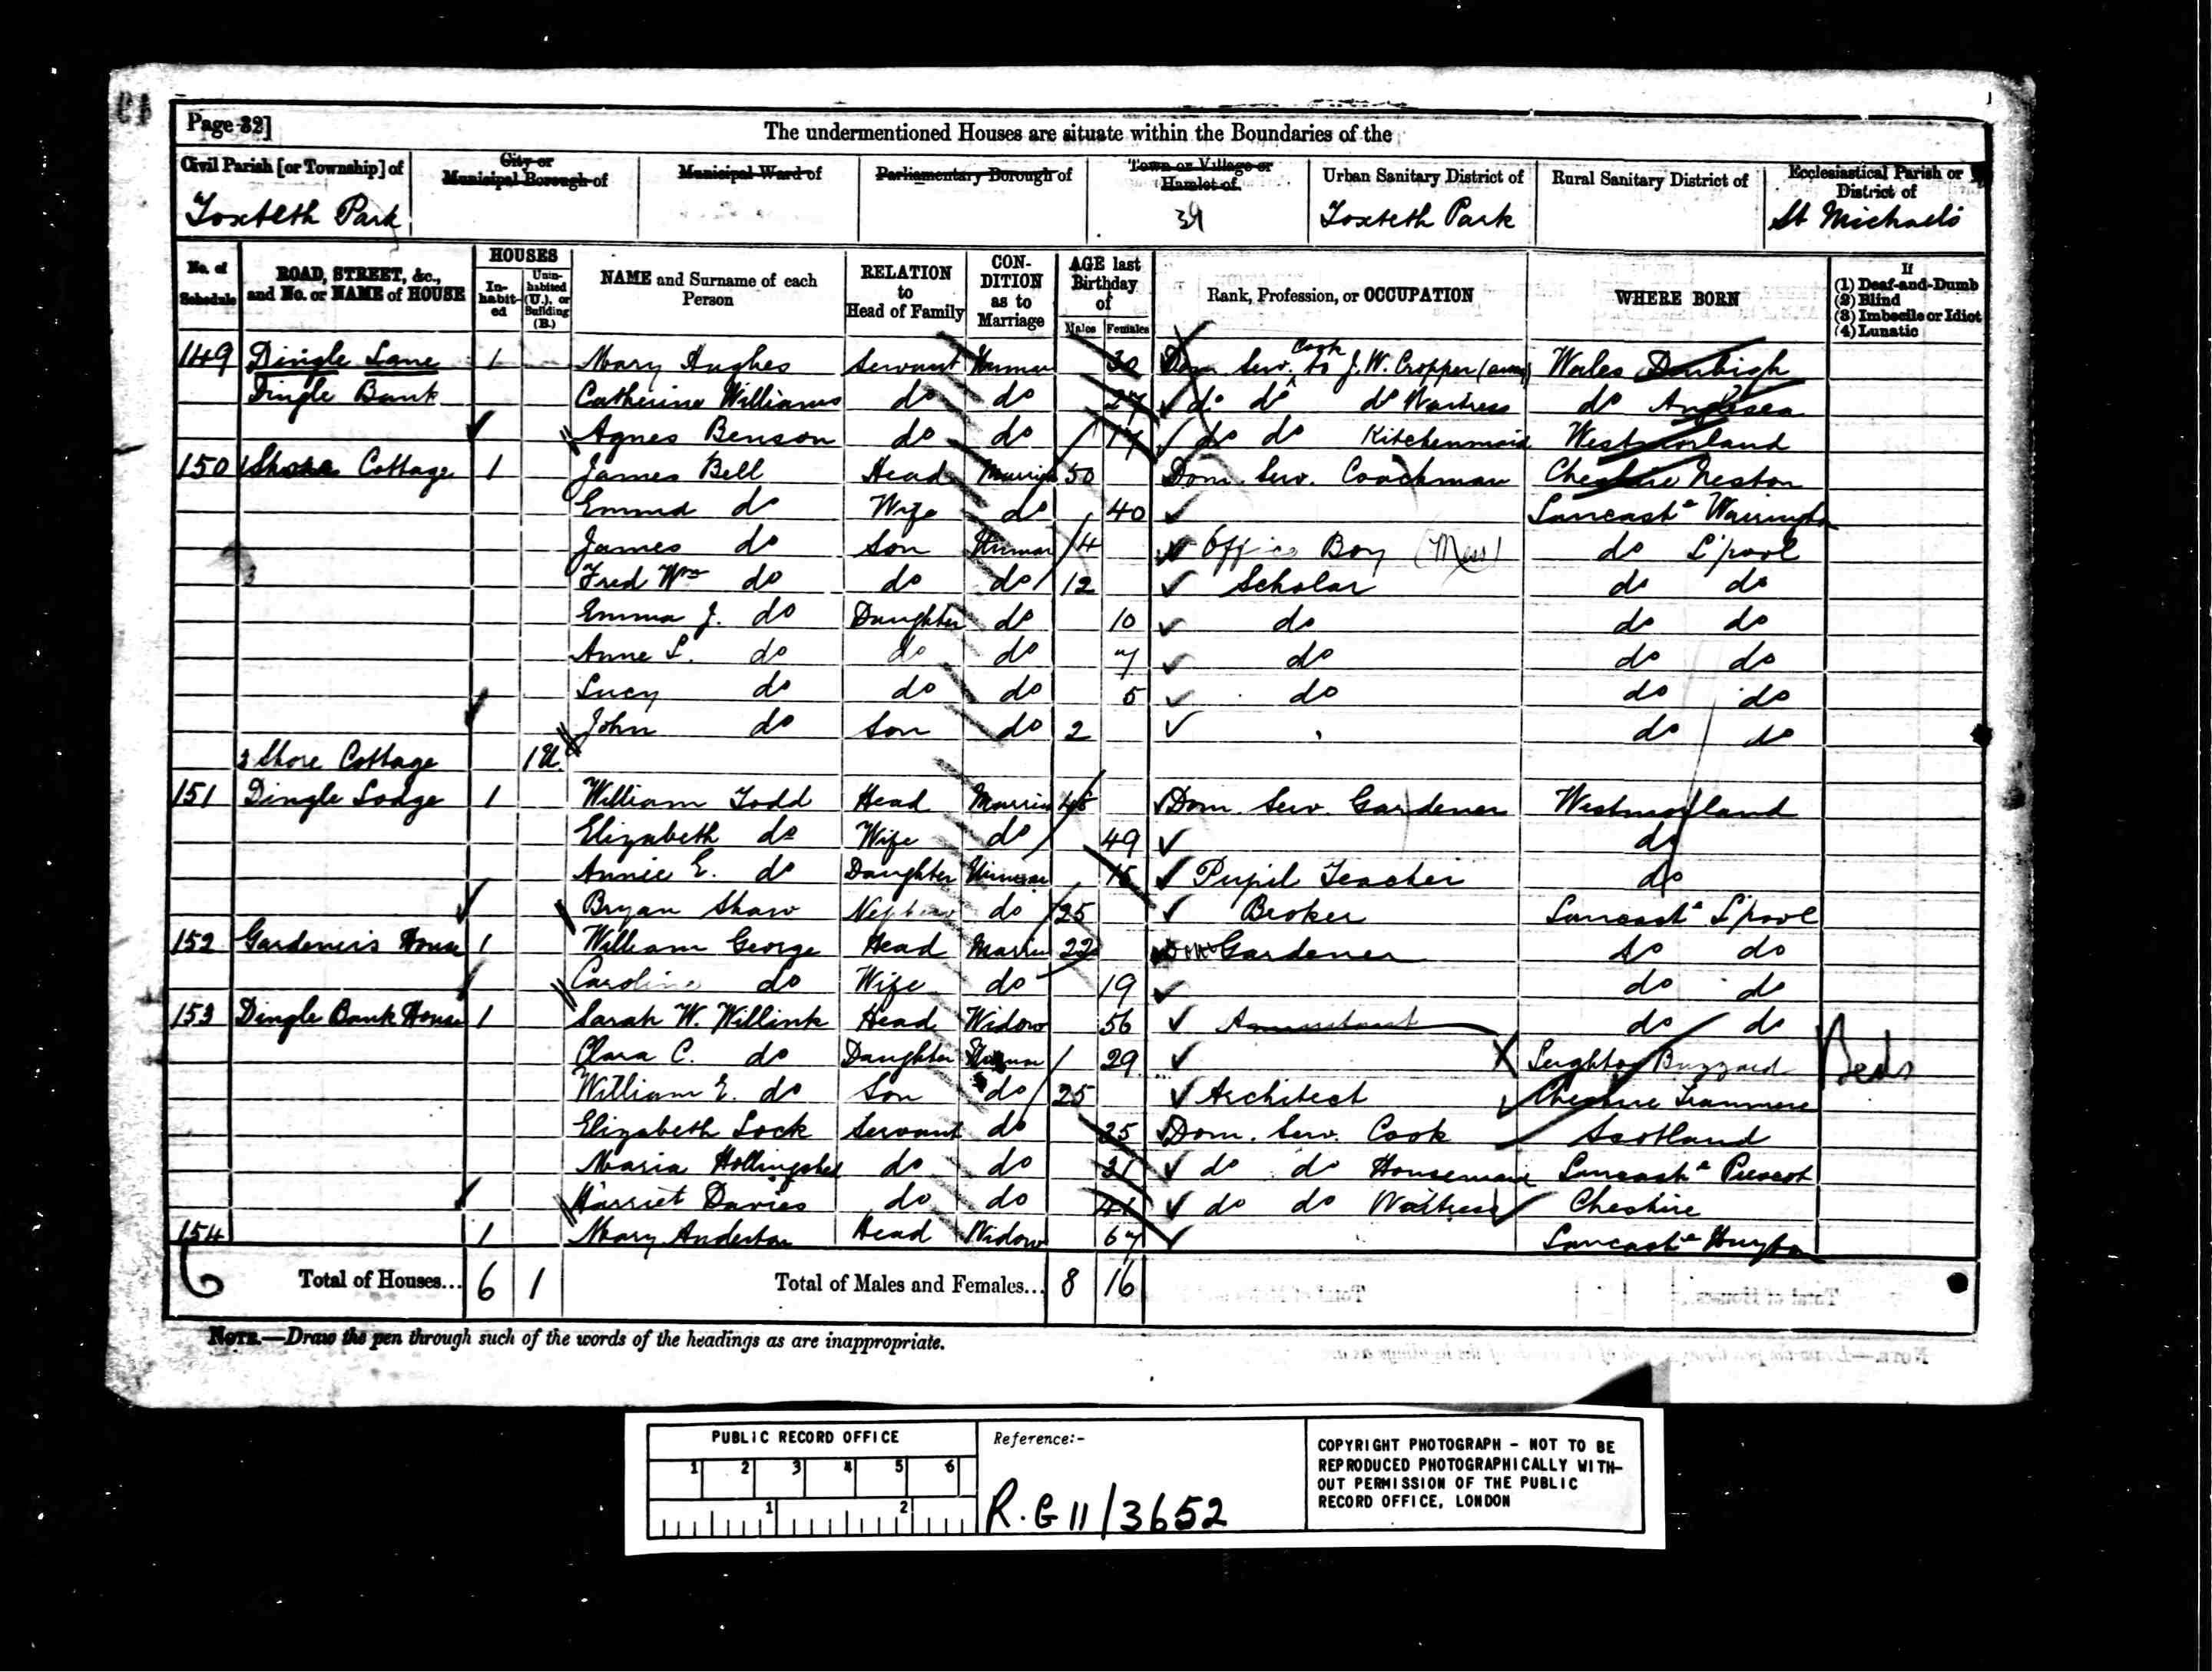 Page 32]
The undermentioned Houses are situate within the Boundaries of the
Civil Parish [or Township] of City or Municipal Borough of Municipal Ward of Parliamentary Borough of Town or Village or Hamlet of Urban Sanitary District of Rural Sanitary District of Ecclesiastical Parish or District of
Toxteth Park 39 Toxteth Park St Michaels
No. of Schedule ROAD, STREET, &c., and No. or NAME of HOUSE HOUSES Inhabited Uninhabited (U.), or Building (B.) NAME and Surname of each Person RELATION to Head of Family CONDITION as to Marriage AGE last Birthday of Males Females Rank, Profession, or OCCUPATION WHERE BORN If (1) Deaf-and-Dumb (2) Blind (3) Imbecile or Idiot (4) Lunatic
149 Dingle Lane 1 Mary Hughes Servant Unmar 30 Dom Serv. Cook to J. W. Cropper Wales Denbigh
Dingle Bank Catherine Williams do do 27 do do do Waitress do Anglesea
Agnes Benson do do 17 do do Kitchenmaid Westmorland
150 1 Shore Cottage 1 James Bell Head Married 50 Dom. Serv. Coachman Cheshire Neston
Emma do Wife do 40 Lancashe Warrington
James do Son Unmar 14 Office Boy (Mess) do L'pool
Fred Wm do do do 12 Scholar do do
Emma J. do Daughter do 10 do do do
Anne L. do do do 7 do do do
Lucy do do do 5 do do do
John do Son do 2 do do
3 Shore Cottage 1 U.
151 Dingle Lodge 1 William Todd Head Married Dom. Serv. Gardener Westmorland
Elizabeth do Wife do 49 do
Annie E. do Daughter Unmar Pupil Teacher do
Bryan Shaw Nephew do 25 Broker Lancashe L'pool
152 Gardener's House 1 William George Head Married 22 Dom Gardener do do
Caroline do Wife do 19 do do
153 Dingle Bank House 1 Sarah W. Willink Head Widow 56 Annuitant do do
Clara C. do Daughter Unmar 29 Leighton Buzzard Beds
William E. do Son do 25 Architect Cheshire Tranmere
Elizabeth Lock Servant do 25 Dom. Serv. Cook Scotland
Maria Hollingshed do do 21 do do Housemaid Lancashe Prescot
Harriet Davies do do 41 do do Waitress Cheshire
154 1 Mary Anderton Head Widow 67 Lancashe Huyton
6 Total of Houses... 6 1 Total of Males and Females... 8 16
NOTE.—Draw the pen through such of the words of the headings as are inappropriate.
PUBLIC RECORD OFFICE
1 2 3 4 5 6
1 2
Reference:-
R.G 11/3652
COPYRIGHT PHOTOGRAPH - NOT TO BE
REPRODUCED PHOTOGRAPHICALLY WITH-
OUT PERMISSION OF THE PUBLIC
RECORD OFFICE, LONDON